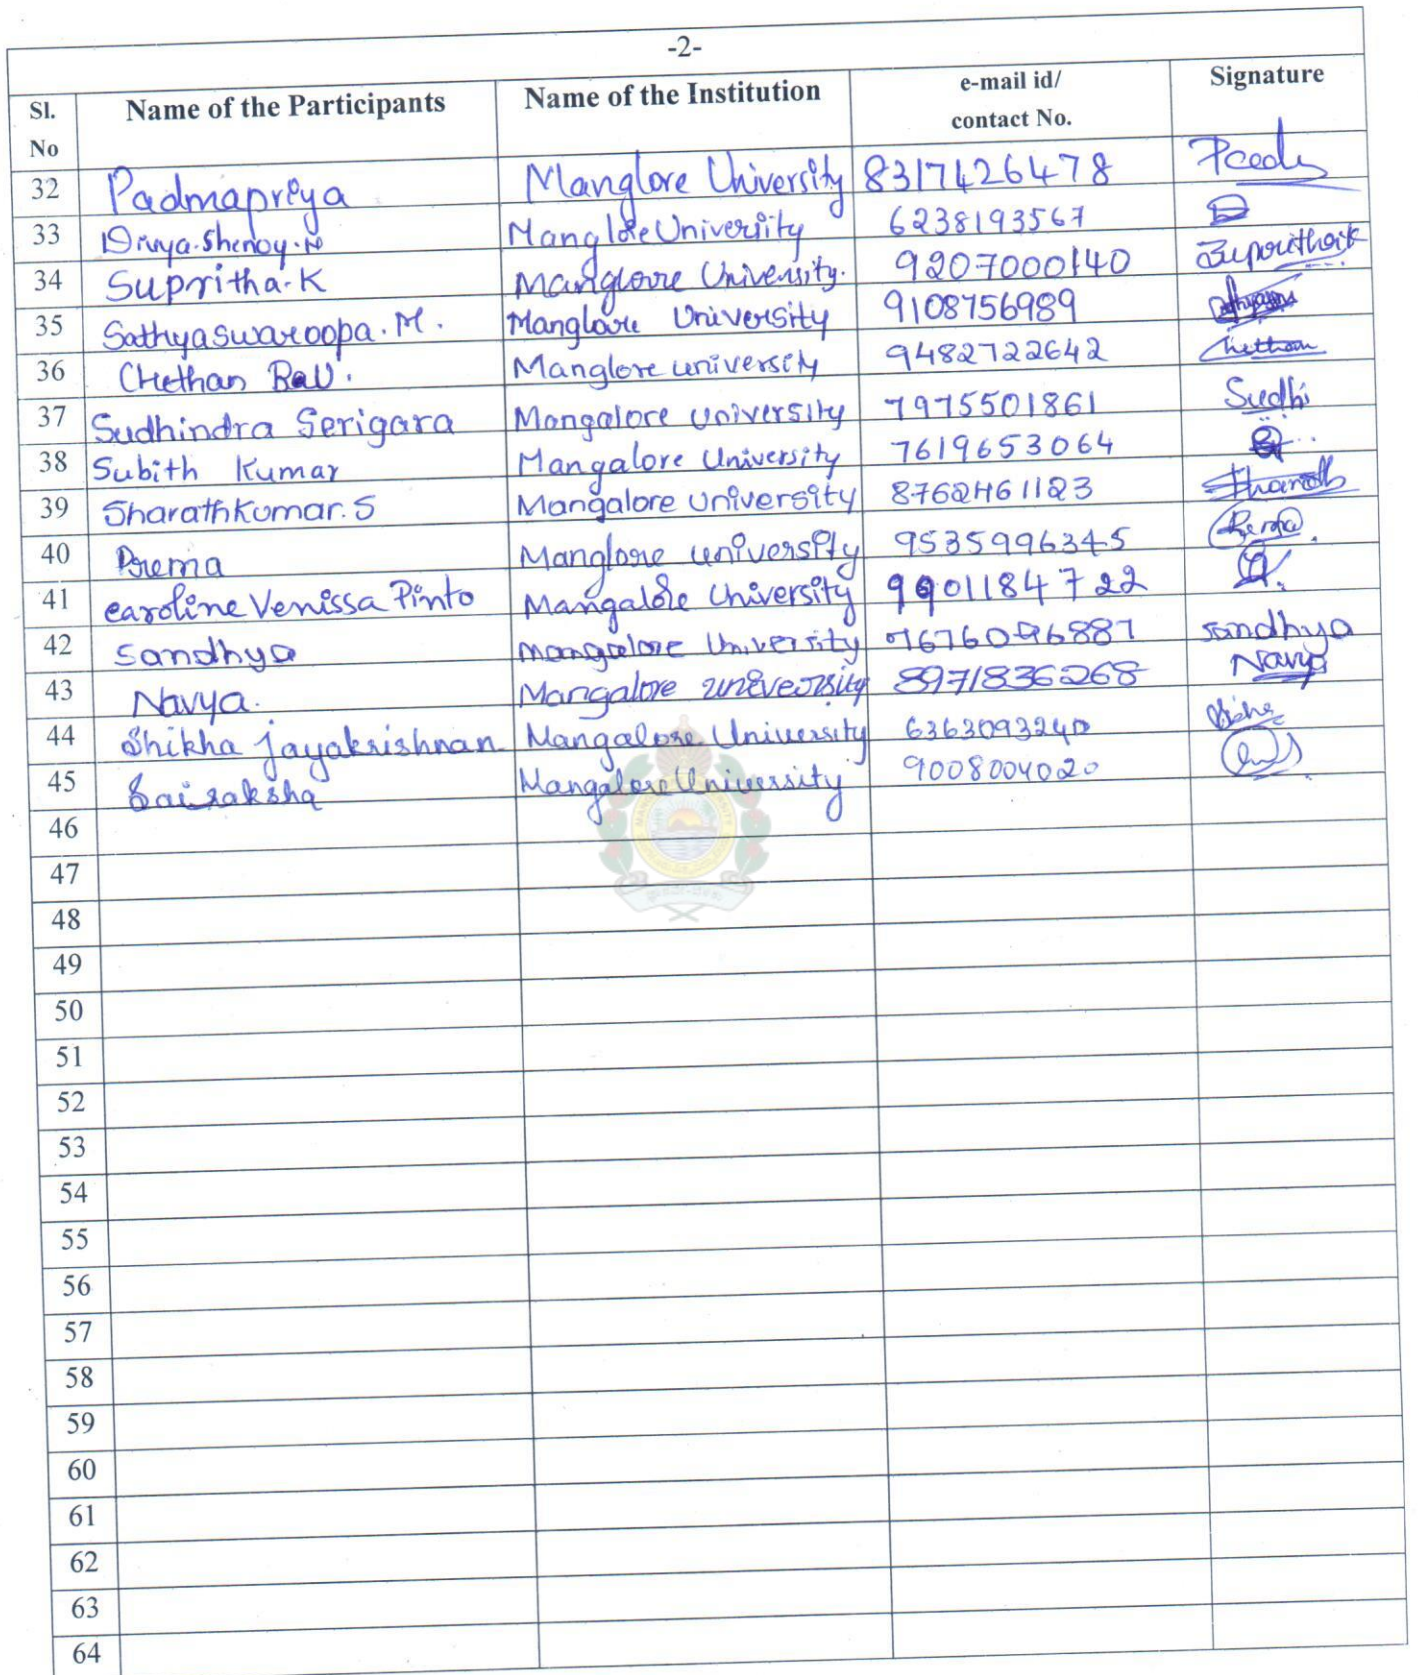 -2-
Sl. No Name of the Participants Name of the Institution e-mail id/ contact No. Signature
32 Padmapriya Manglore University 8317426478
33 Divya.Shenoy.N Manglore University 6238193567
34 Supritha.K Manglore University. 9207000140 Suprithak
35 Sathyaswaroopa.M. Manglore University 9108756989
36 Chethan Manglore university 9482722642 Chethan
37 Sudhindra Serigara Mangalore University 7975501861 Sudhi
38 Subith Kumar Mangalore University 7619653064
39 Sharathkumar.S Mangalore University 8762461123 Sharath
40 Prema Manglore university 9535996345 Prema
41 caroline Venissa Pinto Mangalore University 9901184722
42 Sandhya Mangalore University 7676096887 Sandhya
43 Navya. Mangalore university 8971836268 Navya
44 Shikha Jayakrishnan Mangalore University 6363093240
45 Sairaksha Mangalore University 9008004020
46
47
48
49
50
51
52
53
54
55
56
57
58
59
60
61
62
63
64